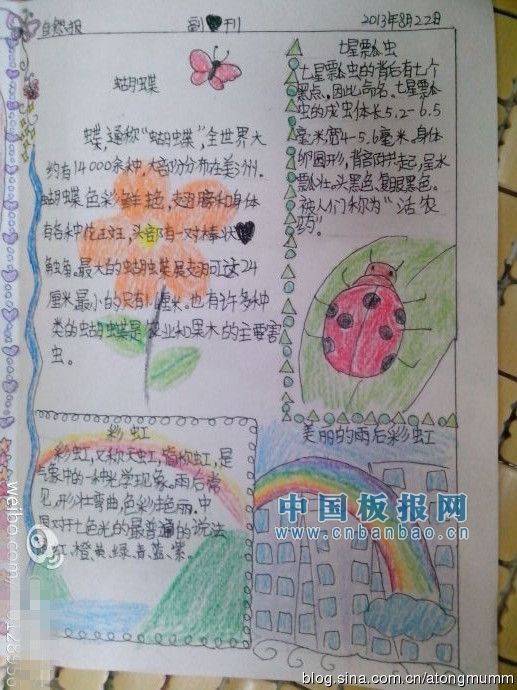 自然报
副刊
2013年8月22日
蝴蝶
蝶,通称“蝴蝶”,全世界大
约有14000余种,大部份分布在美洲.
蝴蝶色彩鲜艳,翅膀和身体
有各种花斑,头部有一对棒状
触角.最大的蝴蝶展翅可达24
厘米最小的只有1.厘米.也有许多种
类的蝴蝶是农业和果木的主要害
虫。
七星瓢虫
七星瓢虫的背后有七个
黑点,因此命名、七星瓢
虫的成虫体长5.2-6.5
毫米宽4-5.6毫米.身体
卵圆形,背部拱起,呈水
瓢壮。头黑色、复眼黑色。
被人们称为“活农
药”。
彩虹
彩虹,又称天虹,简称虹,是
气象中的一种光学现象。雨后常
见,形壮弯曲,色彩艳丽.中
国对七色光的最普通的说法
红、橙黄、绿、青、蓝、紫.
美丽的雨后彩虹
中国板报网
www.cnbanbao.cn
weibo.com
blog.sina.com.cn/atongmumm